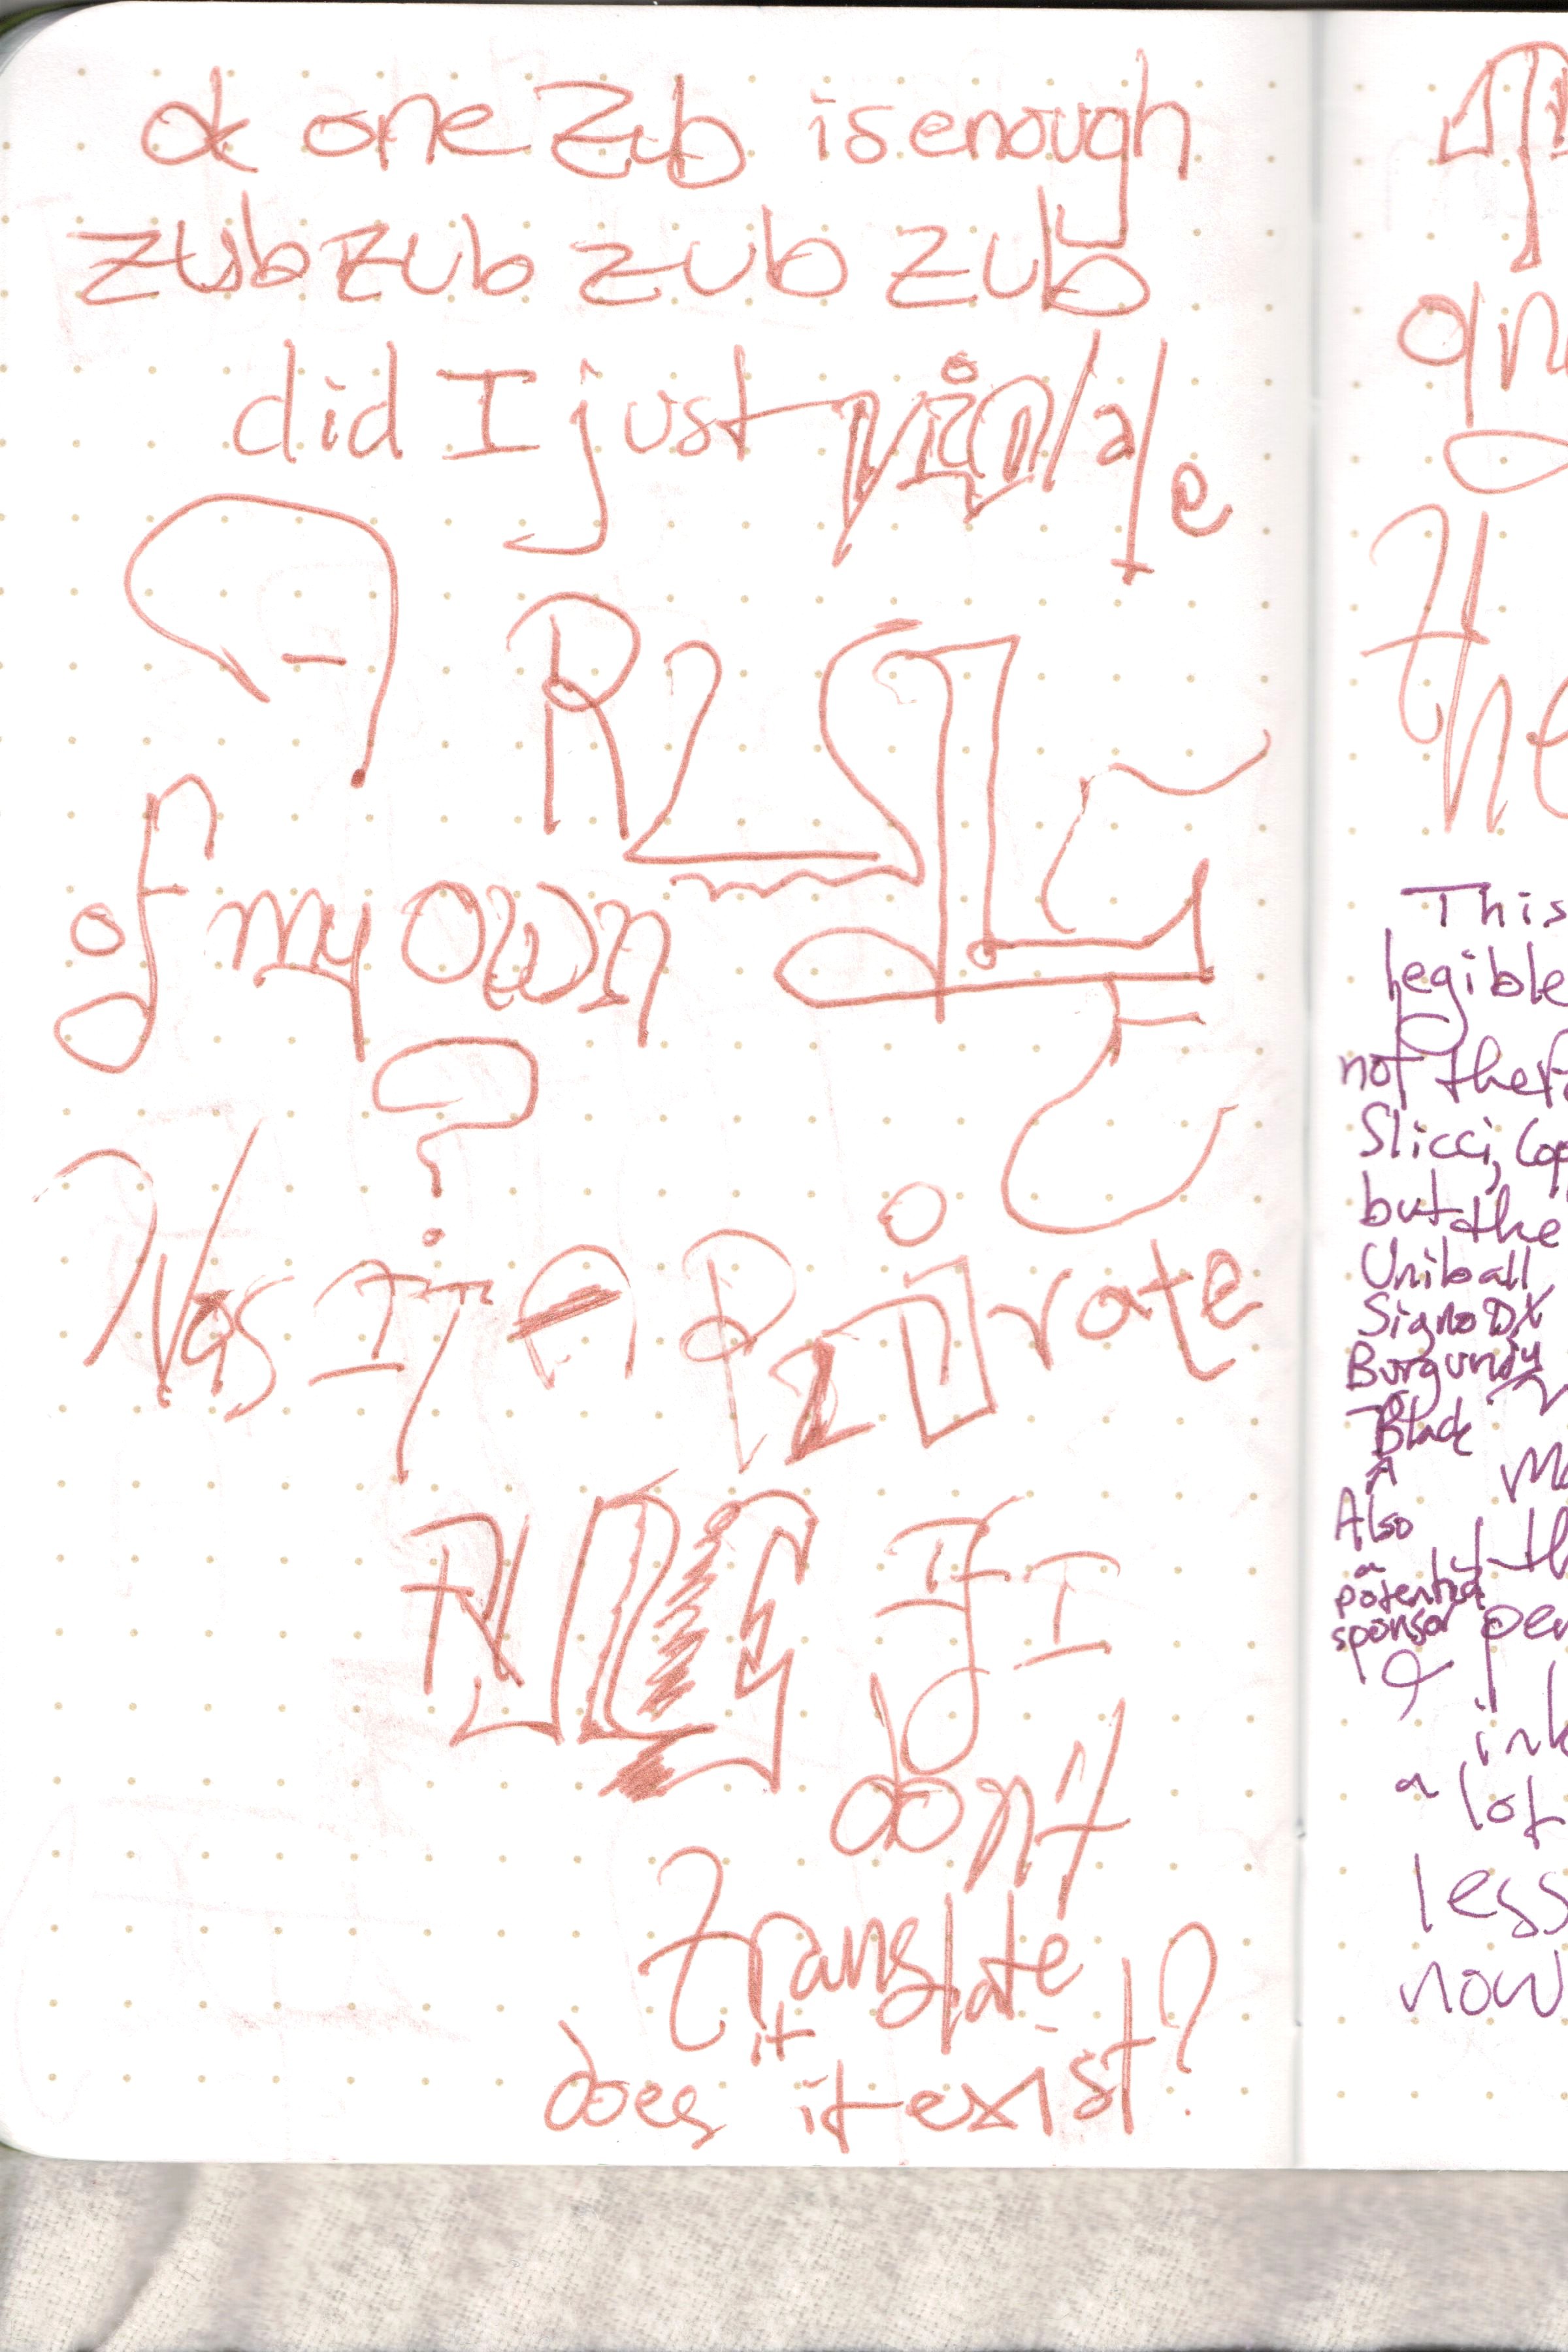 ok one zub is enough
zub zub zub zub
did I just violate
a RULE
of my own
?
Was it a Private
RULE If I
don't
translate
it
does it exist?
an
The
This
legible
not the
Slicci, Cop
but the
Uniball
Signo DX
Burgundy
Black
Also
a
potential
sponsor
pen
ink
a lot
less
now